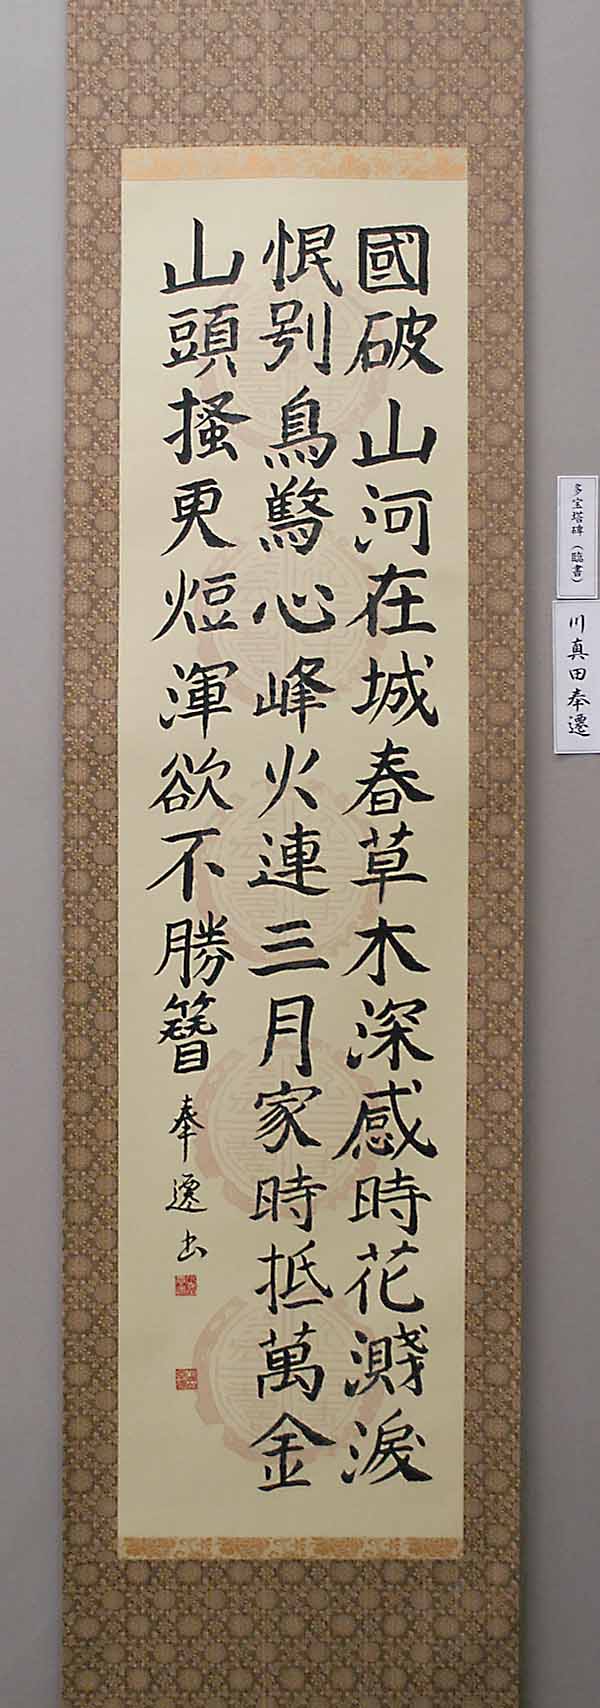 國破山河在城春草木深感時花濺淚
恨別鳥驚心峰火連三月家時抵萬金
山頭搔更短渾欲不勝簪 奉遷书
多宝塔碑（臨書）
川真田奉遷